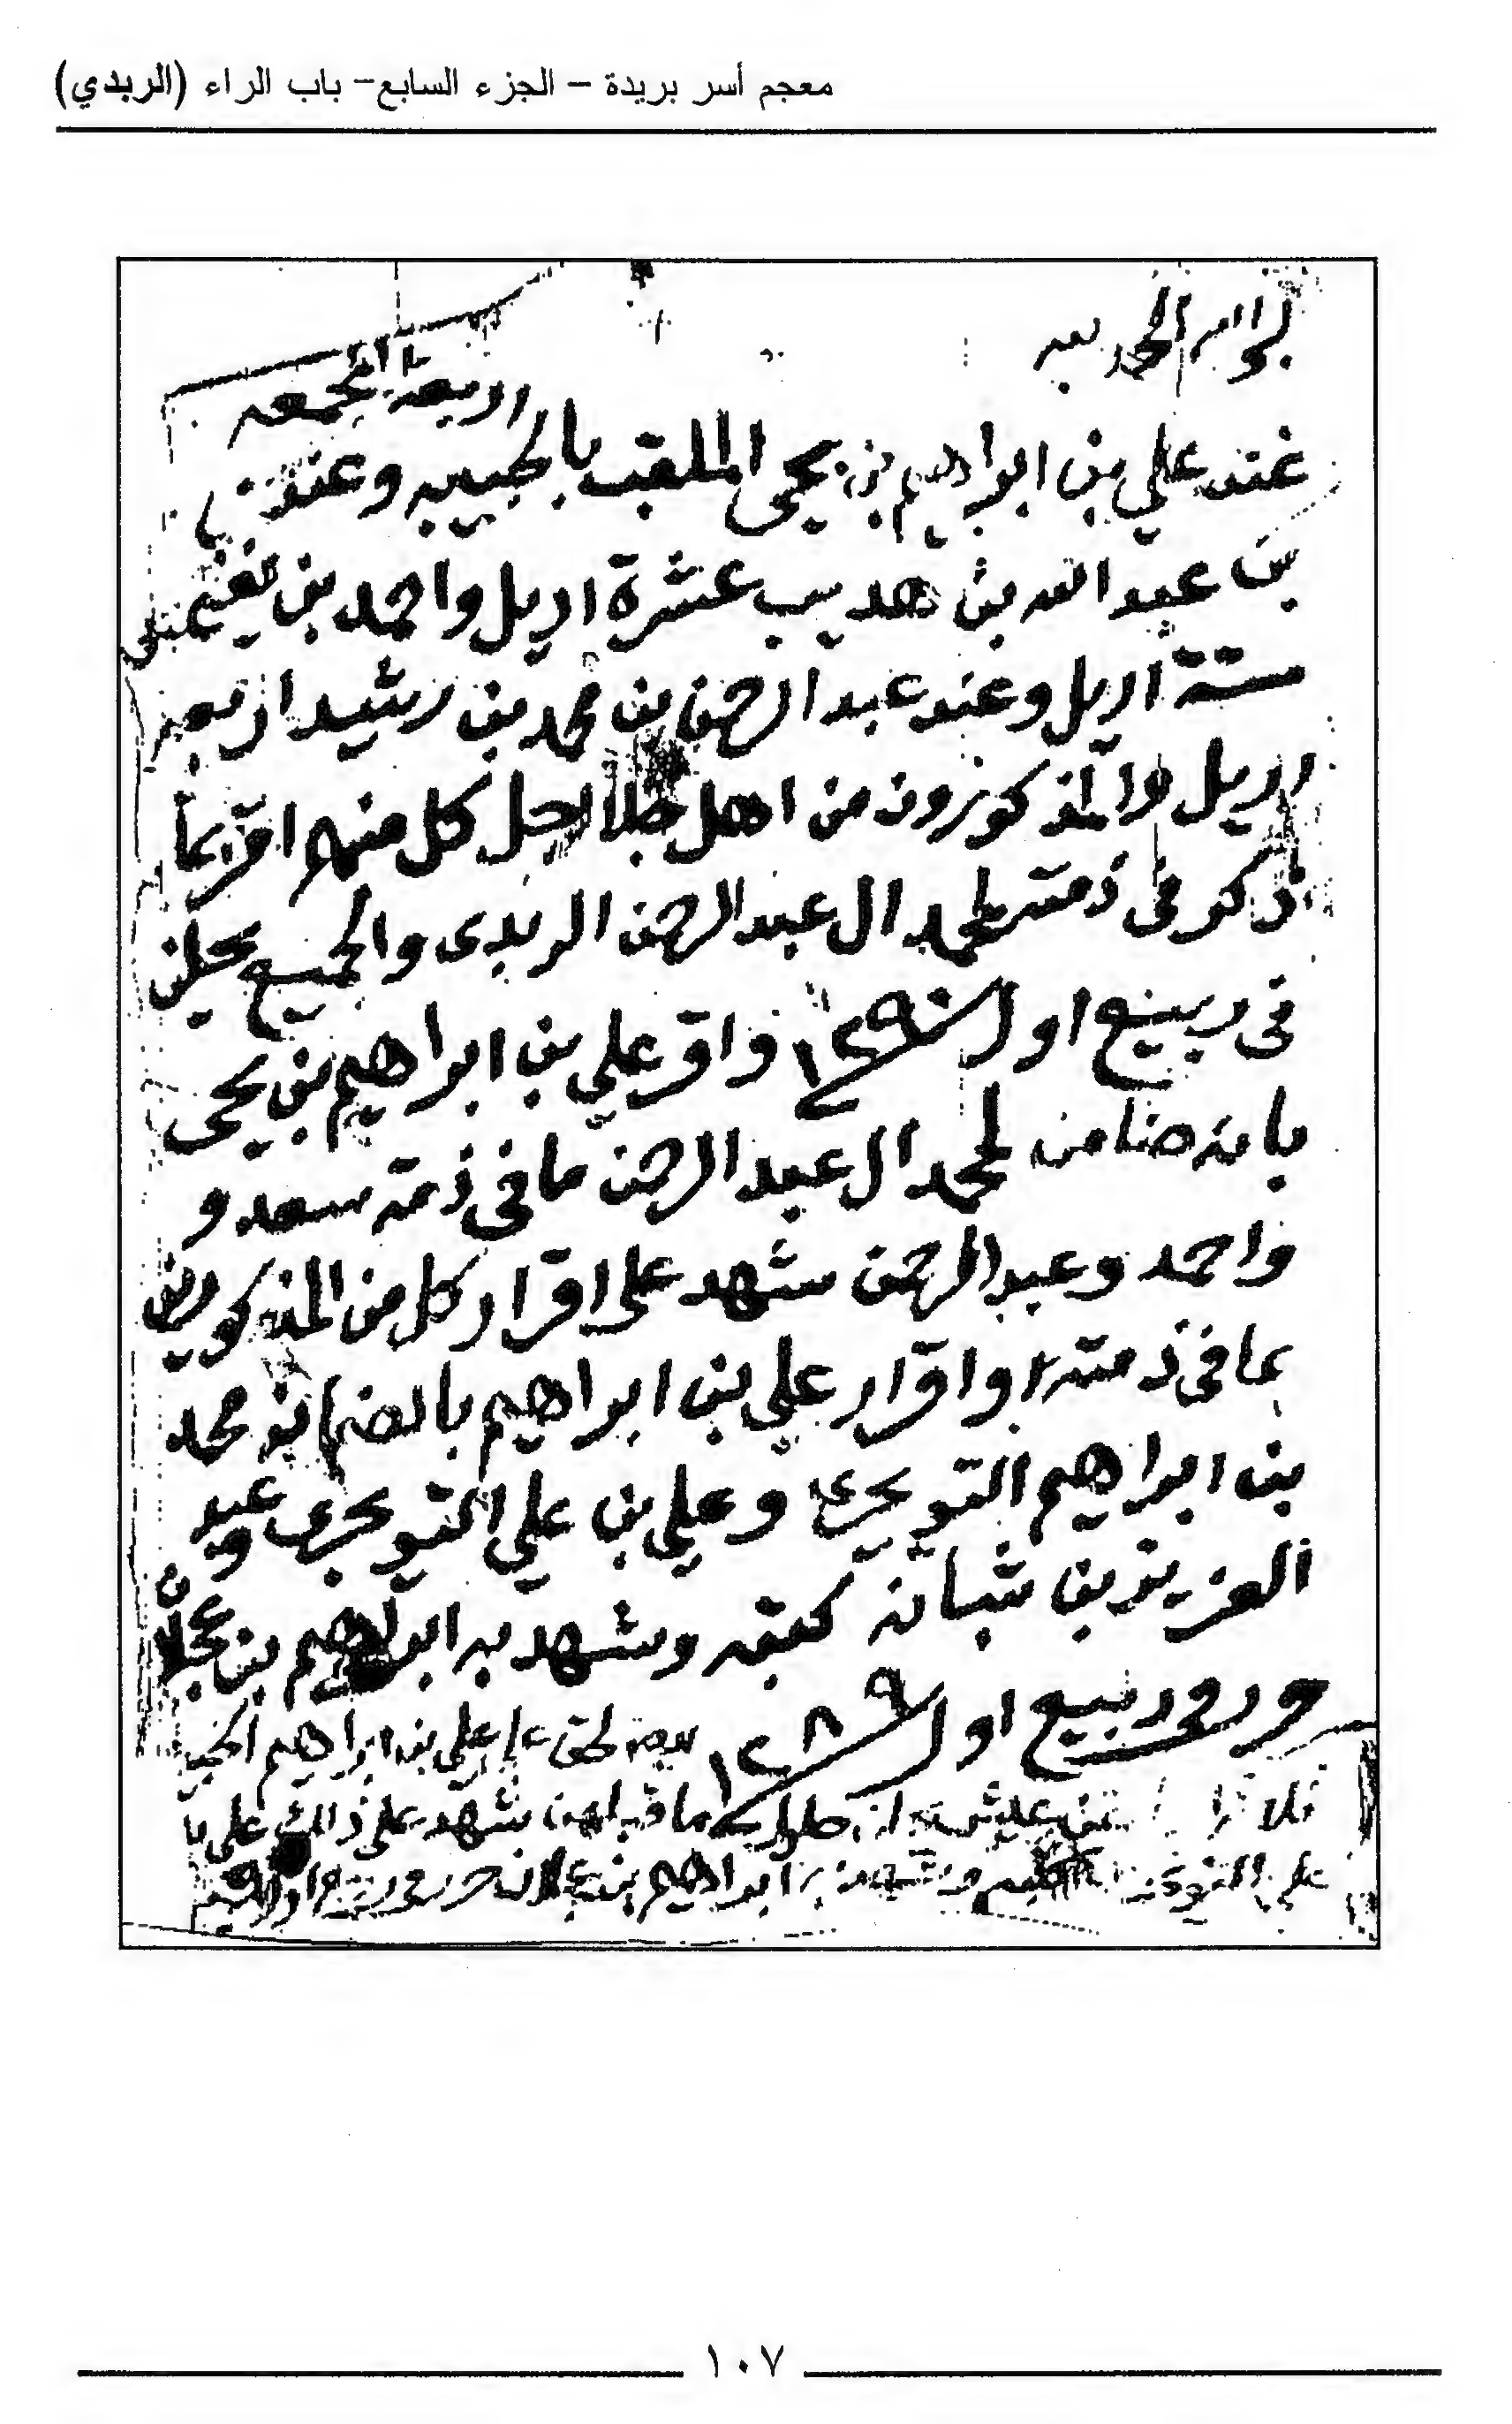 معجم أسر بريدة – الجزء السابع– باب الراء (الربدي)
الحمد لله
اربعة المجمعه
عند علي بن ابراهيم بن يحيى الملقب بالجبيبه وعند
بن عبد الله بن هديب عشرة اريل واحمد بن نغيمش
ستة اريل وعند عبد الرحمن بن محمد بن رشيد اربعه
اريل والمذكورون من اهل كل منهم اقر بما
ذكر في ذمته لمحمد ال عبد الرحمن الربدي والجميع يحلن
في ربيع اول سنة ١٢٩٠ واقر علي بن ابراهيم بن يحيى
بانه ضامن لمحمد ال عبد الرحمن ما في ذمة سعد و
واحمد وعبد الرحمن شهد على اقرار كل من المذكورين
بما في ذمته واقرار علي بن ابراهيم بالضمانه محمد
بن ابراهيم التويجري وعلي بن علي التويجري وعبد
العزيز بن شبانه كتبه وشهد به ابراهيم بن عجلان
حرر في ربيع اول ١٢٨٩ لحق علي بن ابراهيم
ثلاثة ما قبلهن شهد على ذالك علي بن
علي ابراهيم بن عجلان حرر في
١٠٧